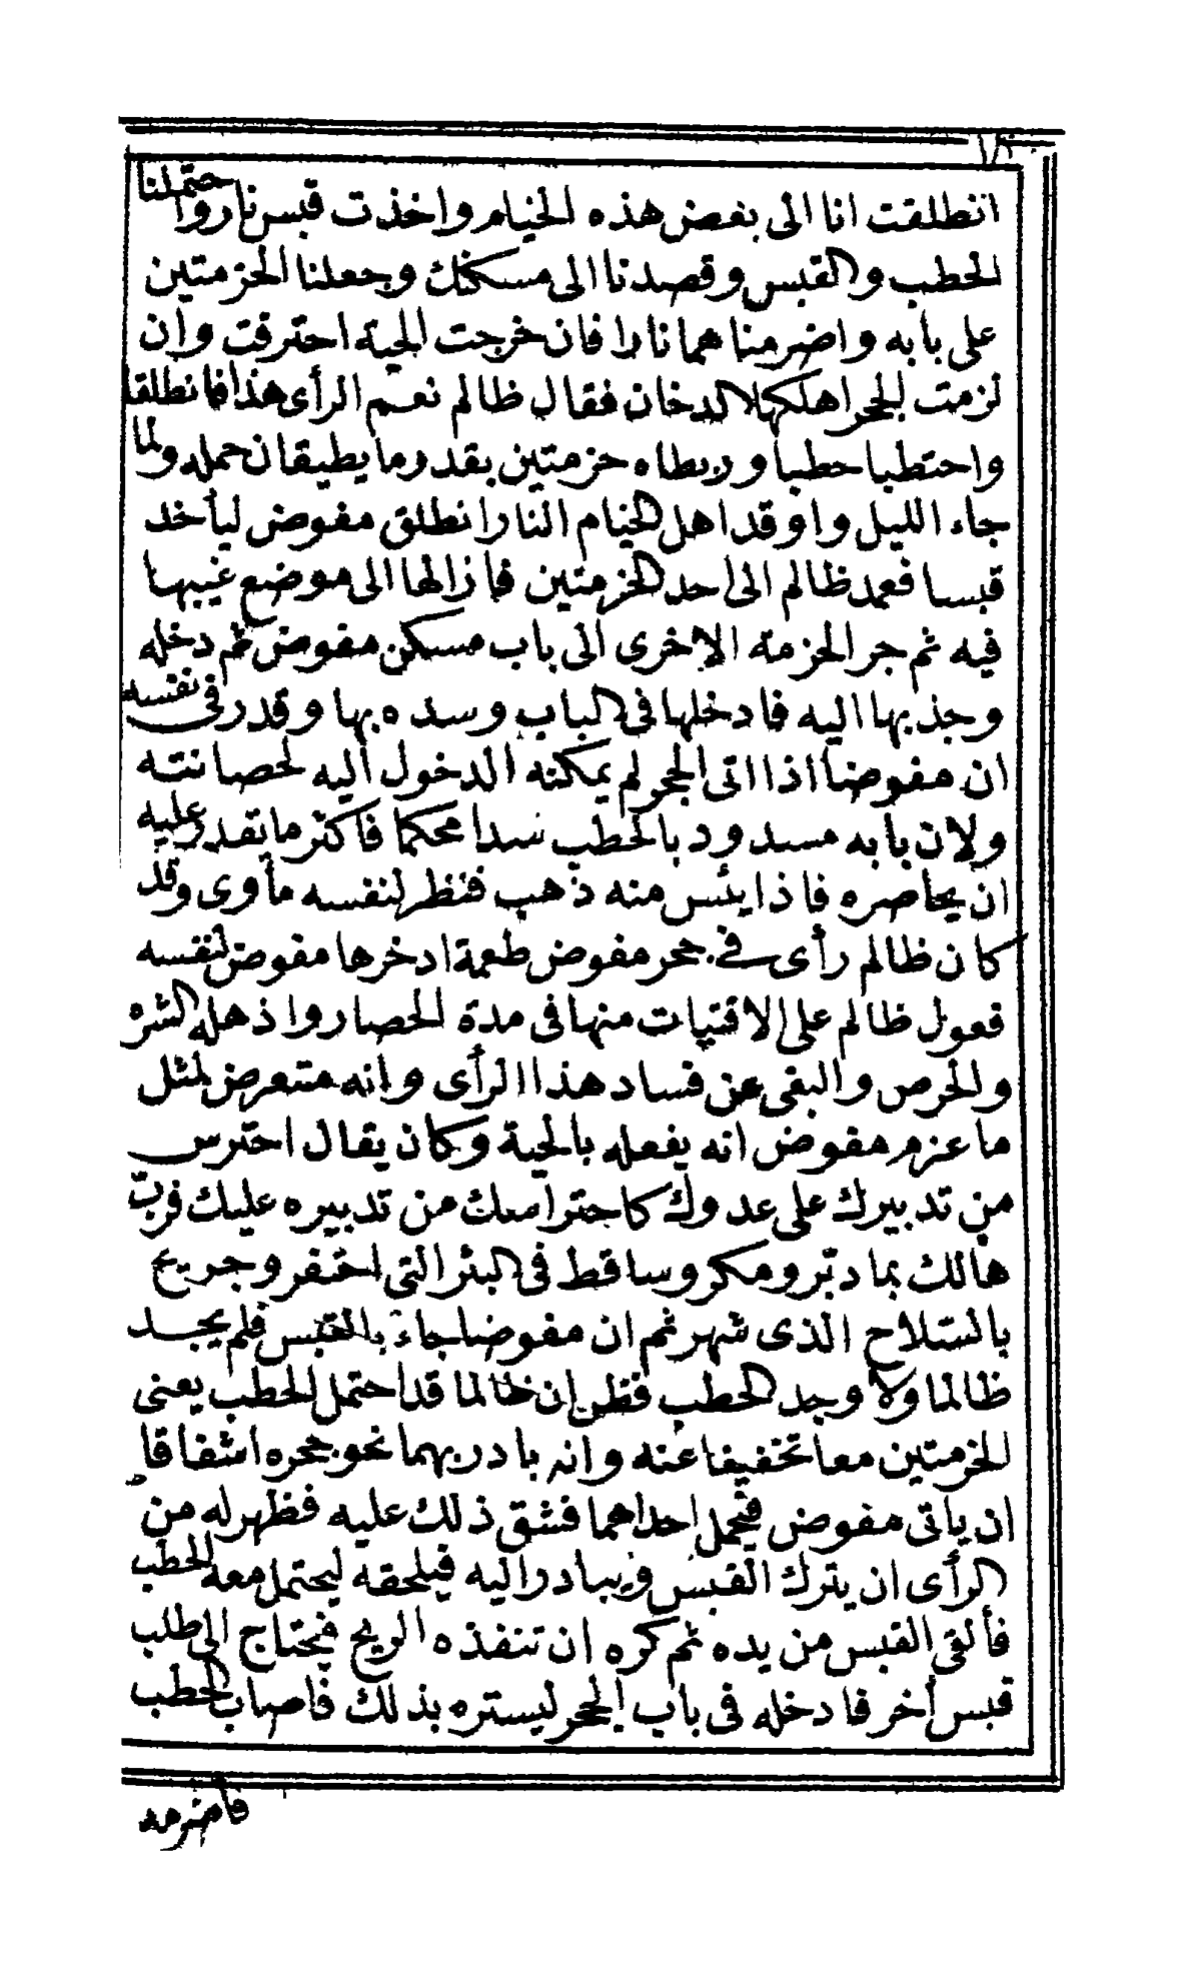 انطلقت انا الى بعض هذه الخيام واخذت قبس نار واحتملنا
الحطب والقبس وقصدنا الى مسكنك وجعلنا الحزمتين
على بابه واضرمنا هما نارا فان خرجت الحية احترقت وان
لزمت الجحر اهلكها الدخان فقال ظالم نعم الرأى هذا فانطلقا
واحتطبا حطبا وربطاه حزمتين بقدر ما يطيقان حمله ولما
جاء الليل واوقد اهل الخيام النار انطلق مفوض ليأخد
قبسا فعمد ظالم الى احد الحزمتين فازالها الى موضع غيبها
فيه ثم جر الحزمة الاخرى الى باب مسكن مفوض ثم دخله
وجذبها اليه فادخلها فى الباب وسده بها وقدر فى نفسه
ان مفوضا اذا اتى الجحر لم يمكنه الدخول اليه لحصانته
ولان بابه مسدود بالحطب سدا محكما فاكثر ما يقدر عليه
ان يحاصره فاذا يئس منه ذهب فنظر لنفسه مأوى وقد
كان ظالم رأى فى جحر مفوض طعمة ادخرها مفوض لنفسه
فعول ظالم على الاقتيات منها فى مدة الحصار واذهله الشره
والحرص والبغى عن فساد هذا الرأى وانه متعرض لمثل
ما عزم مفوض انه يفعله بالحية وكان يقال احترس
من تدبيرك على عدوك كاحتراسك من تدبيره عليك فربّ
هالك بما دبّر ومكر وساقط فى البئر التى احتفر وجريح
بالسّلاح الذى شهر ثم ان مفوضا جاء بالقبس فلم يجد
ظالما ولا وجد الحطب فظن ان ظالما قد احتمل الحطب يعنى
الحزمتين معا تخفيفا عنه وانه بادر بهما نحو جحره اشفاقا
ان ياتى مفوض فيحمل احداهما فشق ذلك عليه فظهر له من
الرأى ان يترك القبس ويبادر اليه فيلحقه ليحتمل معه الحطب
فألقى القبس من يده ثم كره ان تنفذه الريح فيحتاج الى طلب
قبس أخر فادخله فى باب الجحر ليستره بذلك فاصاب الحطب
فأضرمه